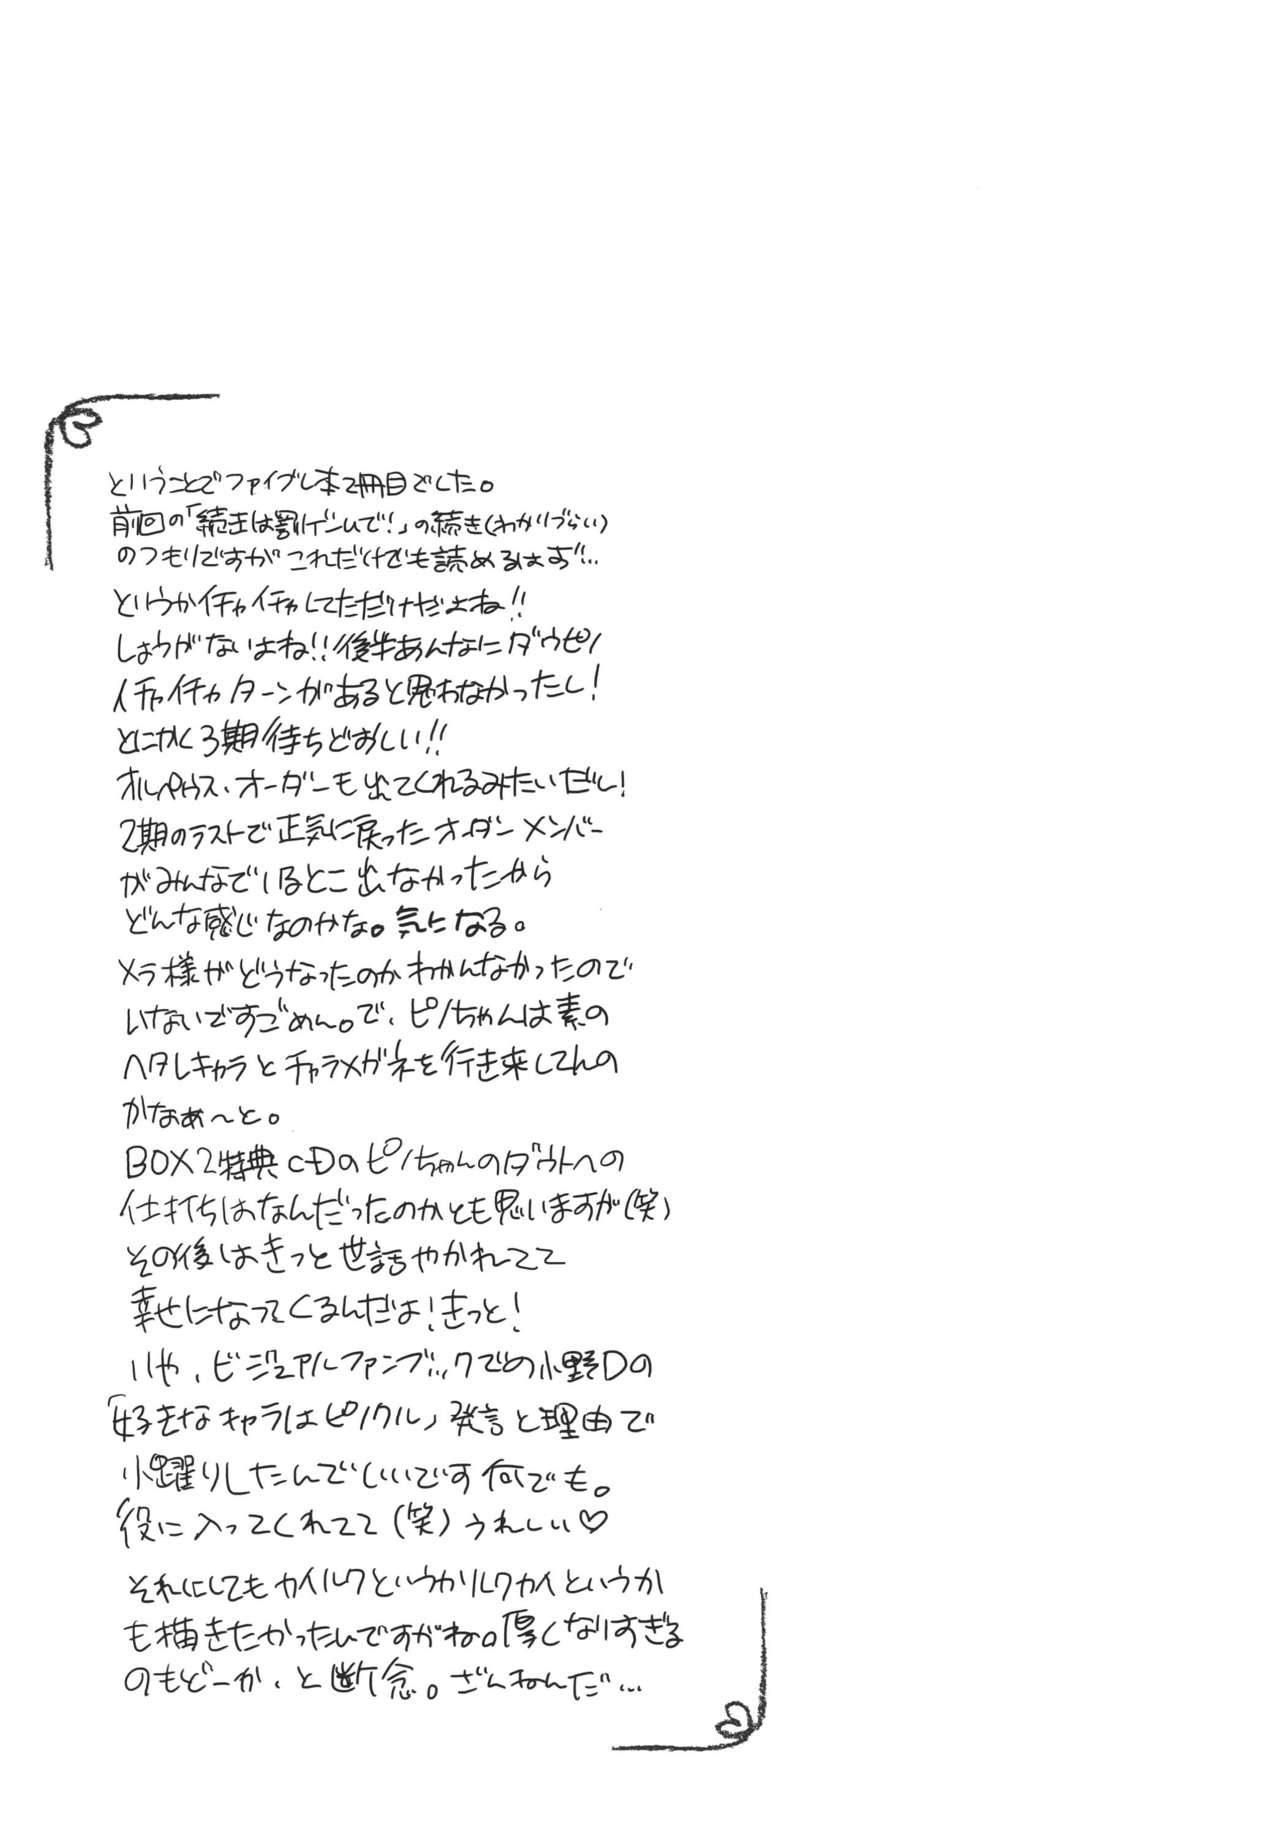 ということでファイブレ本2冊目でした。
前回の「続きは割ゲンムで!」の続き(わかりづらい)
のつもりですが これだけでも読めるはず…
というかイチャイチャしてただけだよね!!
しょうがないよね!!後半あんなにダウピノ
イチャイチャターンがあると思わなかったし!
とにかく3期待ちどおしい!!
オルペウス・オーダーも出てくれるみたいだし!
2期のラストで正気に戻ったオーダーメンバー
がみんなでいるとこ出なかったから
どんな感じなのかな。気になる。
メラ様がどうなったのかわかんなかったので
いないですごめん。で、ピノちゃんは素の
ヘタレキャラとチャラメガネを行き来してんの
かなぁ〜と。
BOX2特典CDのピノちゃんのダウトへの
仕打ちはなんだったのかとも思いますが(笑)
その後はきっと世話やかれてて
幸せになってくるんだよ!きっと!
いや、ビジュアルファンブックでの小野Dの
「好きなキャラはピノクル」発言と理由で
小躍りしたんでいいです何でも。
役に入ってくれてて(笑)うれしい♡
それにしてもカイルクというかルクカイというか
も描きたかったんですがね。厚くなりすぎる
のもどーか、と断念。ざんねんだ…